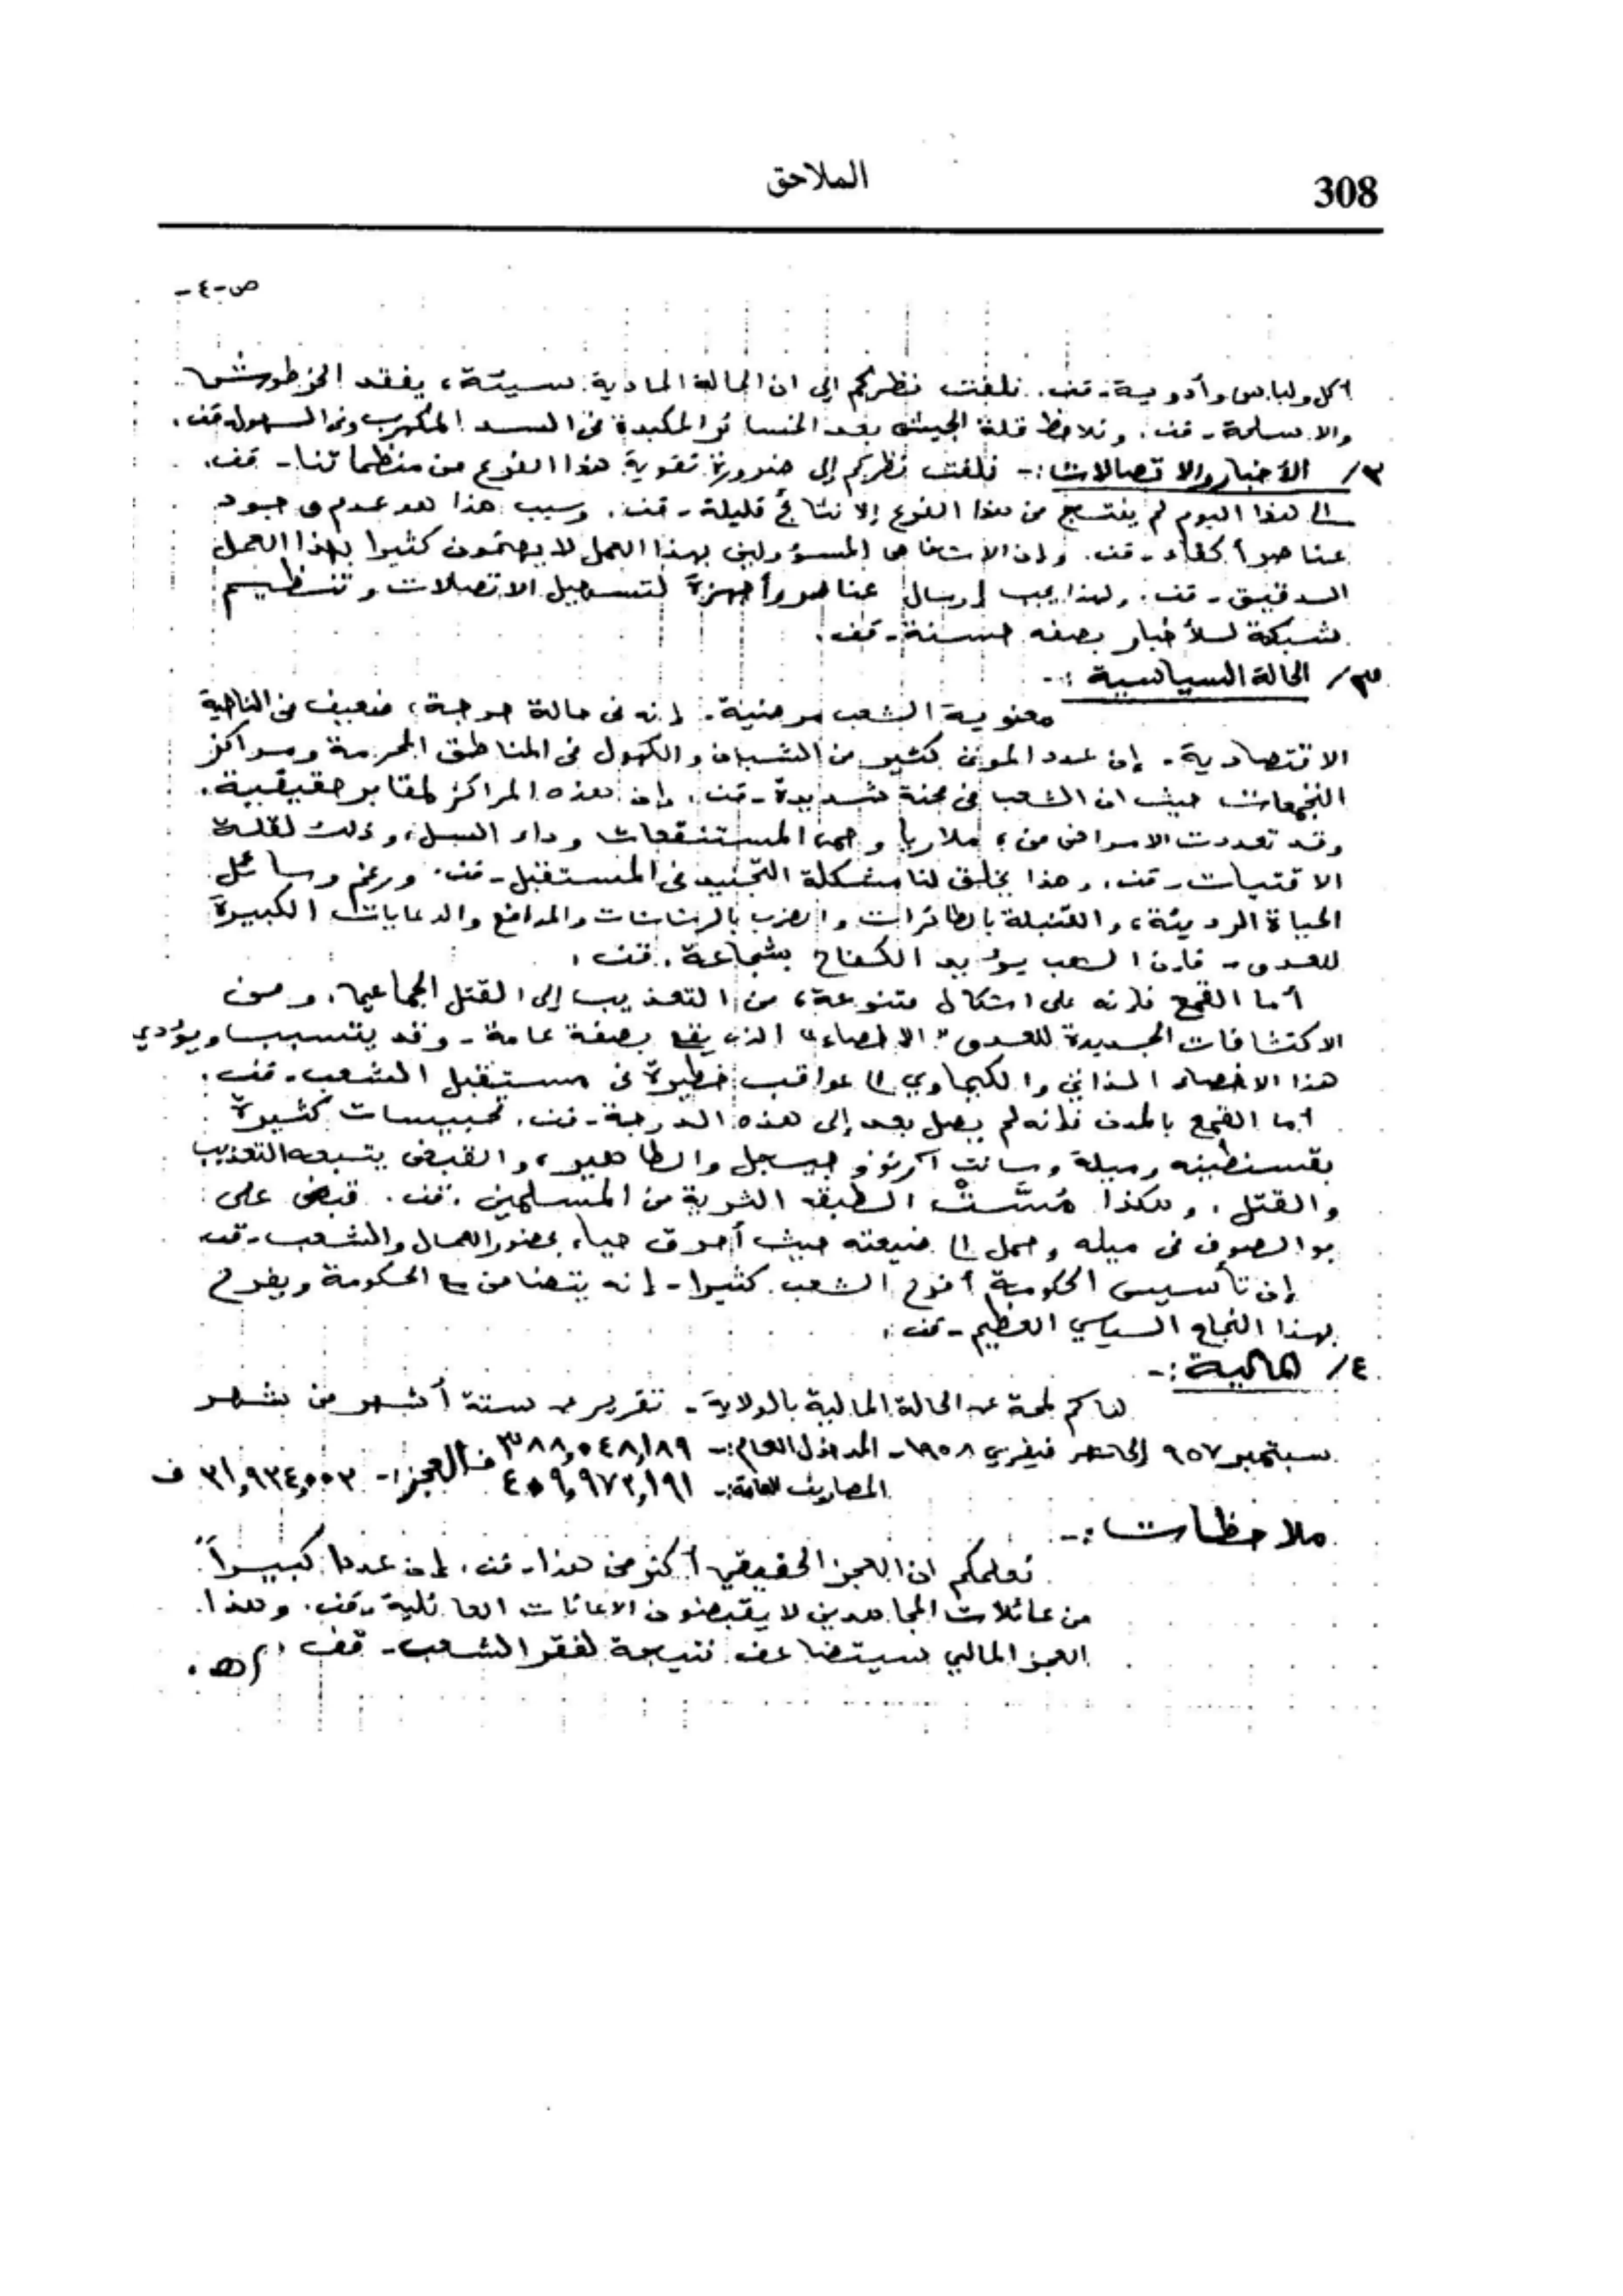 308
الملاحق
ص-٤-
أكل ولباس وأدوية - قف. نلفت نظركم إلي ان الحالة المادية سيئة، يفقد الخرطوش
والاسلحة - قف. ونلاحظ قلة الجيش بعد الخسائر المكبدة في السد المكهرب وفي السهول قف.
٢/ الأخبار والاتصالات :- نلفت نظركم إلى ضرورة تقوية هذا الفرع من منظماتنا - قف.
إلى هذا اليوم لم ينتج من هذا الفرع إلا نتائج قليلة - قف. وسبب هذا هو عدم وجود
عناصر أكفاء - قف. وان الاشخاص المسؤولين بهذا العمل لا يهتمون كثيرا بهذا العمل
الدقيق - قف. ولهذا يجب إرسال عناصر وأجهزة لتسهيل الاتصلات وتنظيم
شبكة للأخبار بصفه حسنة - قف.
٣/ الحالة السياسية :-
معنوية الشعب مرضية. إنه في حالة حرجة، ضعيف من الناحية
الاقتصادية. إن عدد الموتى كثير من الشبان والكهول في المناطق المحرمة ومراكز
التجمعات حيث ان الشعب في محنة شديدة - قف. وان هذه المراكز لمقابر حقيقية.
وقد تعددت الامراض من ؛ ملاريا وحمى المستنقعات وداء السل، وذلك لقلة
الاقتيات - قف. وهذا يخلق لنا مشكلة التجنيد في المستقبل - قف. ورغم وسائل
الحياة الرديئة، والقنبلة بالطائرات والضرب بالرشاشات والمدافع والدعايات الكبيرة
للعدو - فإن الشعب يؤيد الكفاح بشجاعة. قف.
أما القمع فإنه على اشكال متنوعة، من التعذيب إلى القتل الجماعي. ومن
الاكتشافات الجديدة للعدو "الاخصاء" الذي يقع بصفة عامة - وقد يتسبب ويؤدي
هذا الاخصاء الغذائي والكيماوي إلى عواقب خطيرة في مستقبل الشعب - قف.
أما القمع بالمدن فإنه لم يصل بعد إلى هذه الدرجة - قف. تحبيسات كثيرة
بقسنطينه وميلة وسانت آرنو وجيجل والطاهير، والقبض يتبعه التعذيب
والقتل. وهكذا مُسَّتْ الطبقه الثرية من المسلمين. قف. قبض على
بو الصوف في ميله وحمل إلى ضيعته حيث أحرق حيا، بحضور العمال والشعب - قف
إن تأسيس الحكومة أفرح الشعب كثيرا - إنه يتضامن مع الحكومة ويفرح
بهذا النجاح السياسي العظيم - قف.
٤/ المالية :-
لمحة عن الحالة المالية بالولاية - تقرير ستة أشهر من شهر
سبتمبر ٩٥٧ إلى شهر فيفري ١٩٥٨ - المدخول العام :- ٣٨٨,٠٤٨,١٨٩
المصاريف العامة :- ٤٠٩,٩٧٢,١٩١ ف العجز :- ٣١,٩٣٤,٠٠٣ ف
ملاحظات :-
نعلمكم ان العجز الحقيقي أكثر من هذا - قف. إن عددا كبيراً
من عائلات المجاهدين لا يقبضون الاعانات العائلية - قف. وهذا
العجز المالي سيتضاعف نتيجة لفقر الشعب - قف. اهـ.